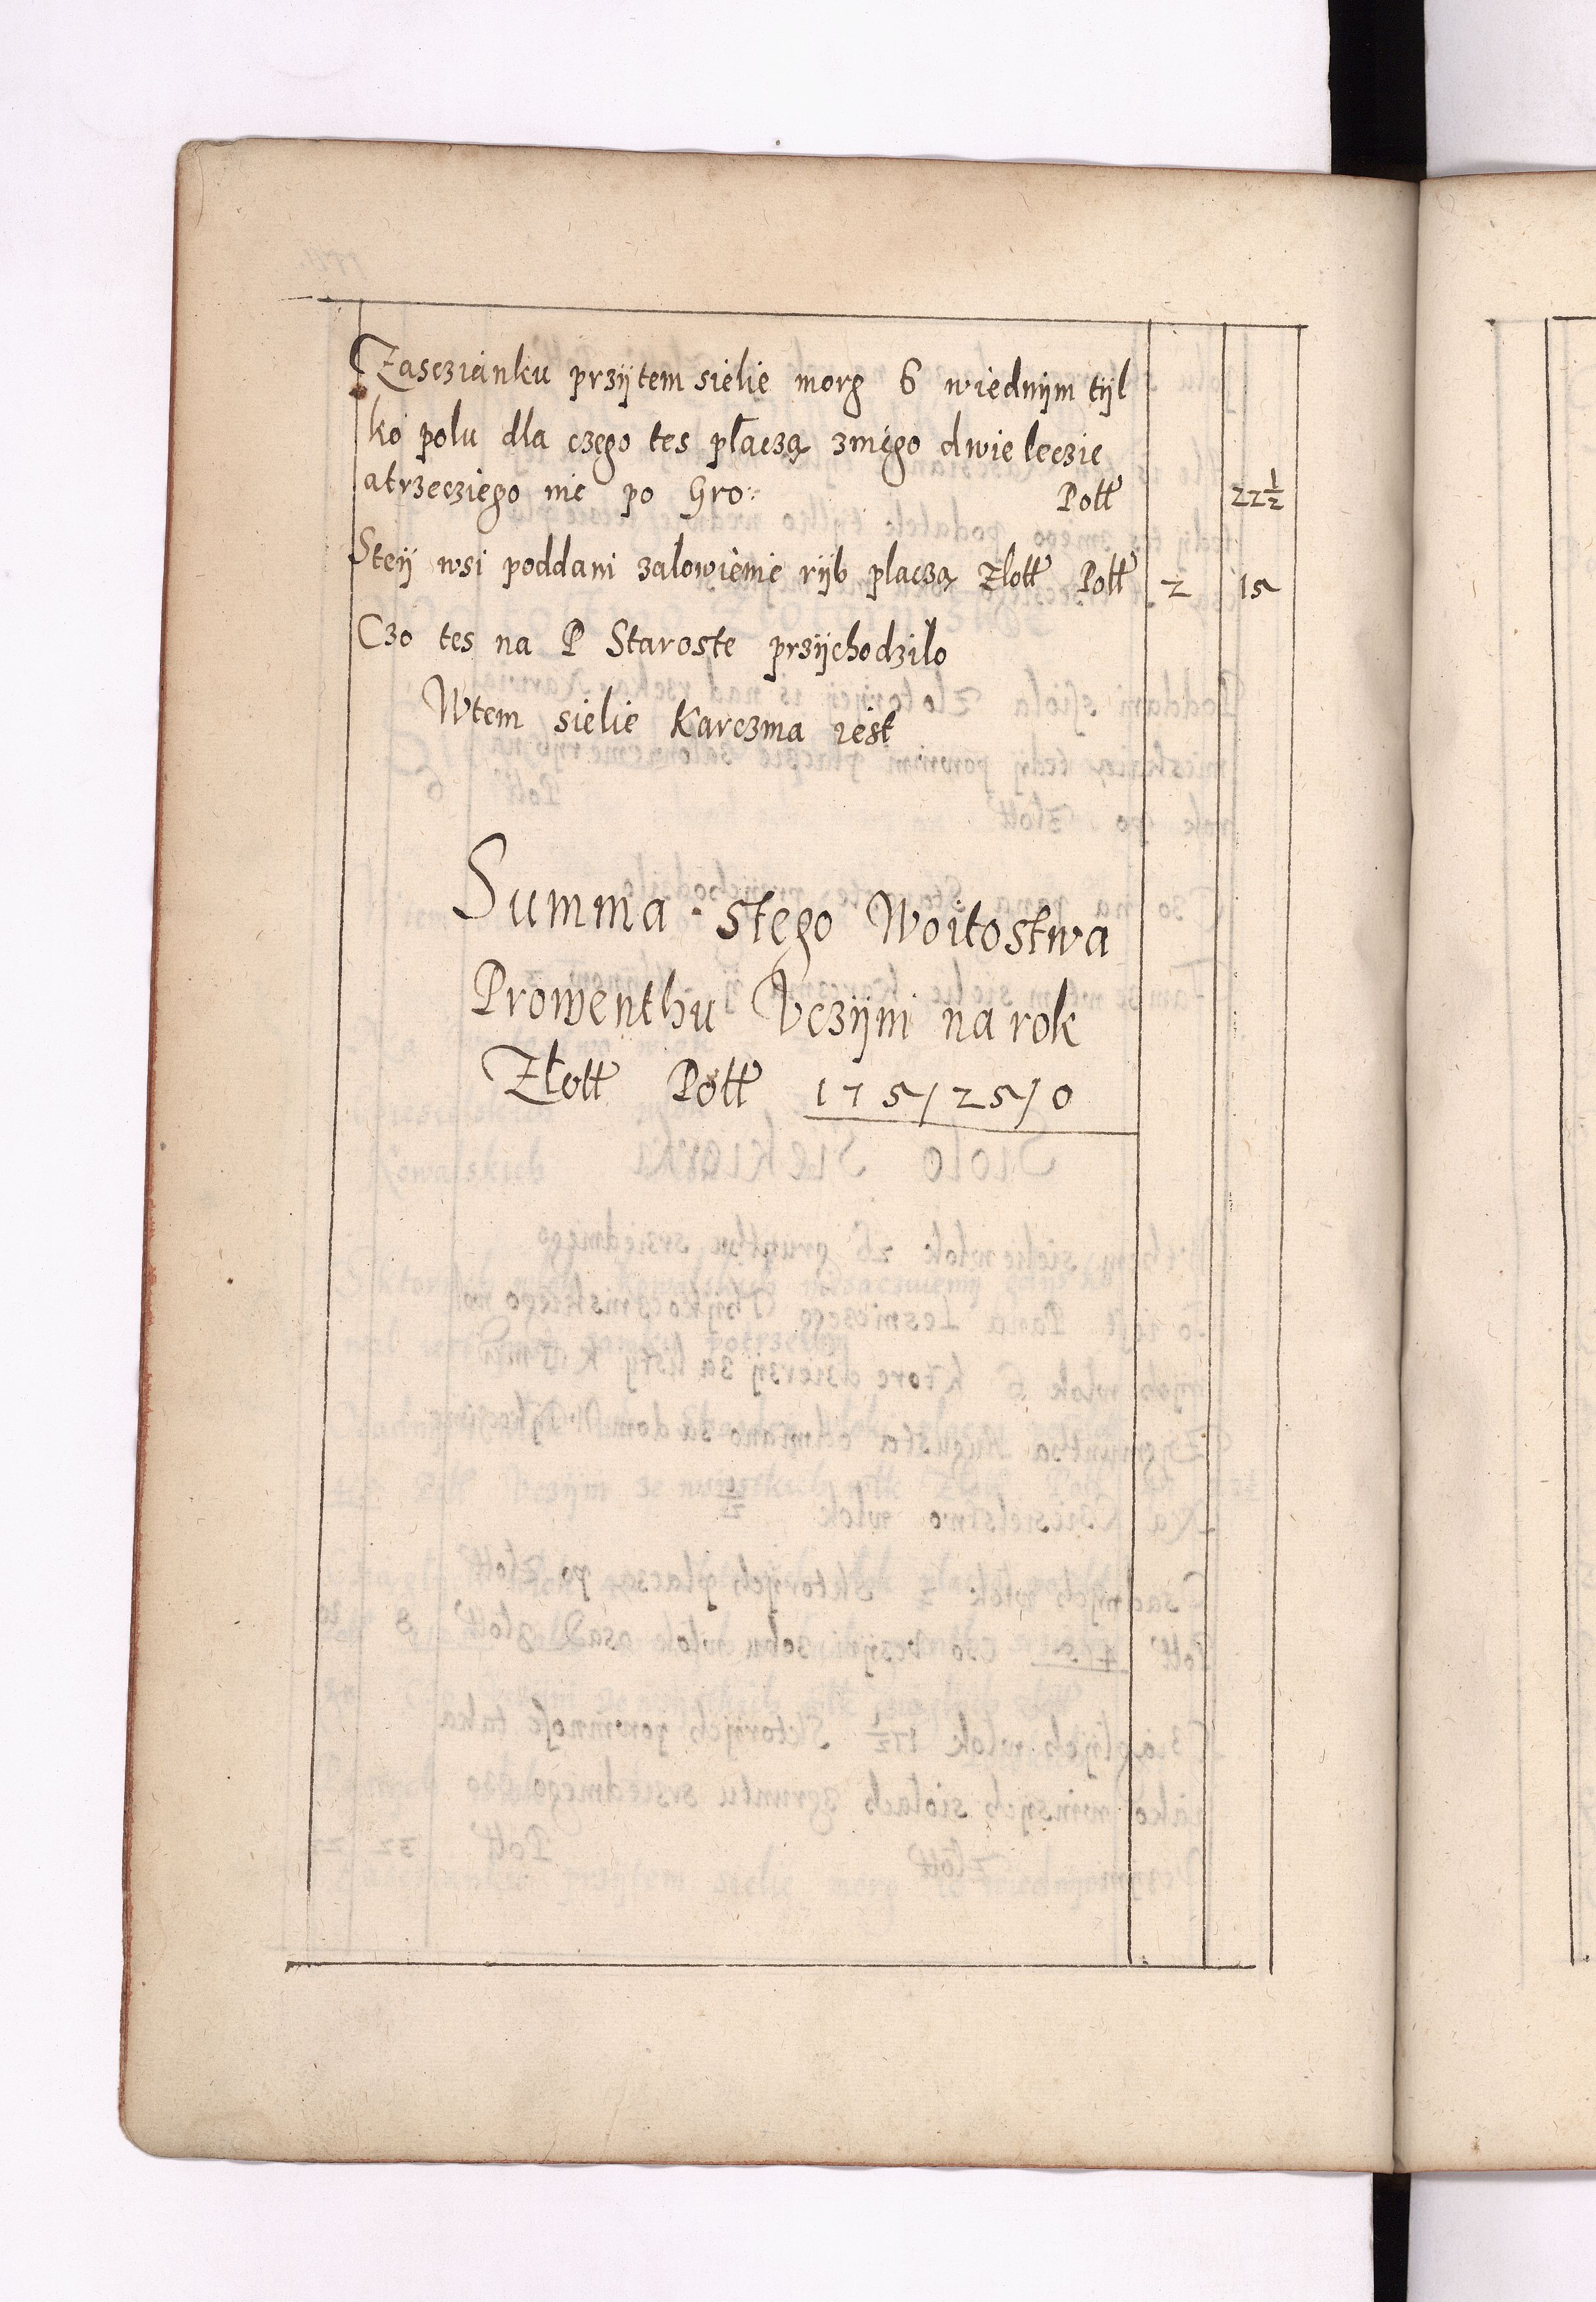 Zasczianku przÿtem sielie morg 6 wiednÿm tÿl
ko polu dla czego tes płaczą zniego dwie leczie
atrzecziego nic po Gro: Poll 22½
Steÿ wsi poddani zalowienie rÿb placzą Złott Poll 2 15
Czo tes na P Staroste przÿchodziło
Wtem sielie Karczma iest
Summa stego Woitostwa
Prowenthu Vczÿni na rok
Złott Poll 175/25/0